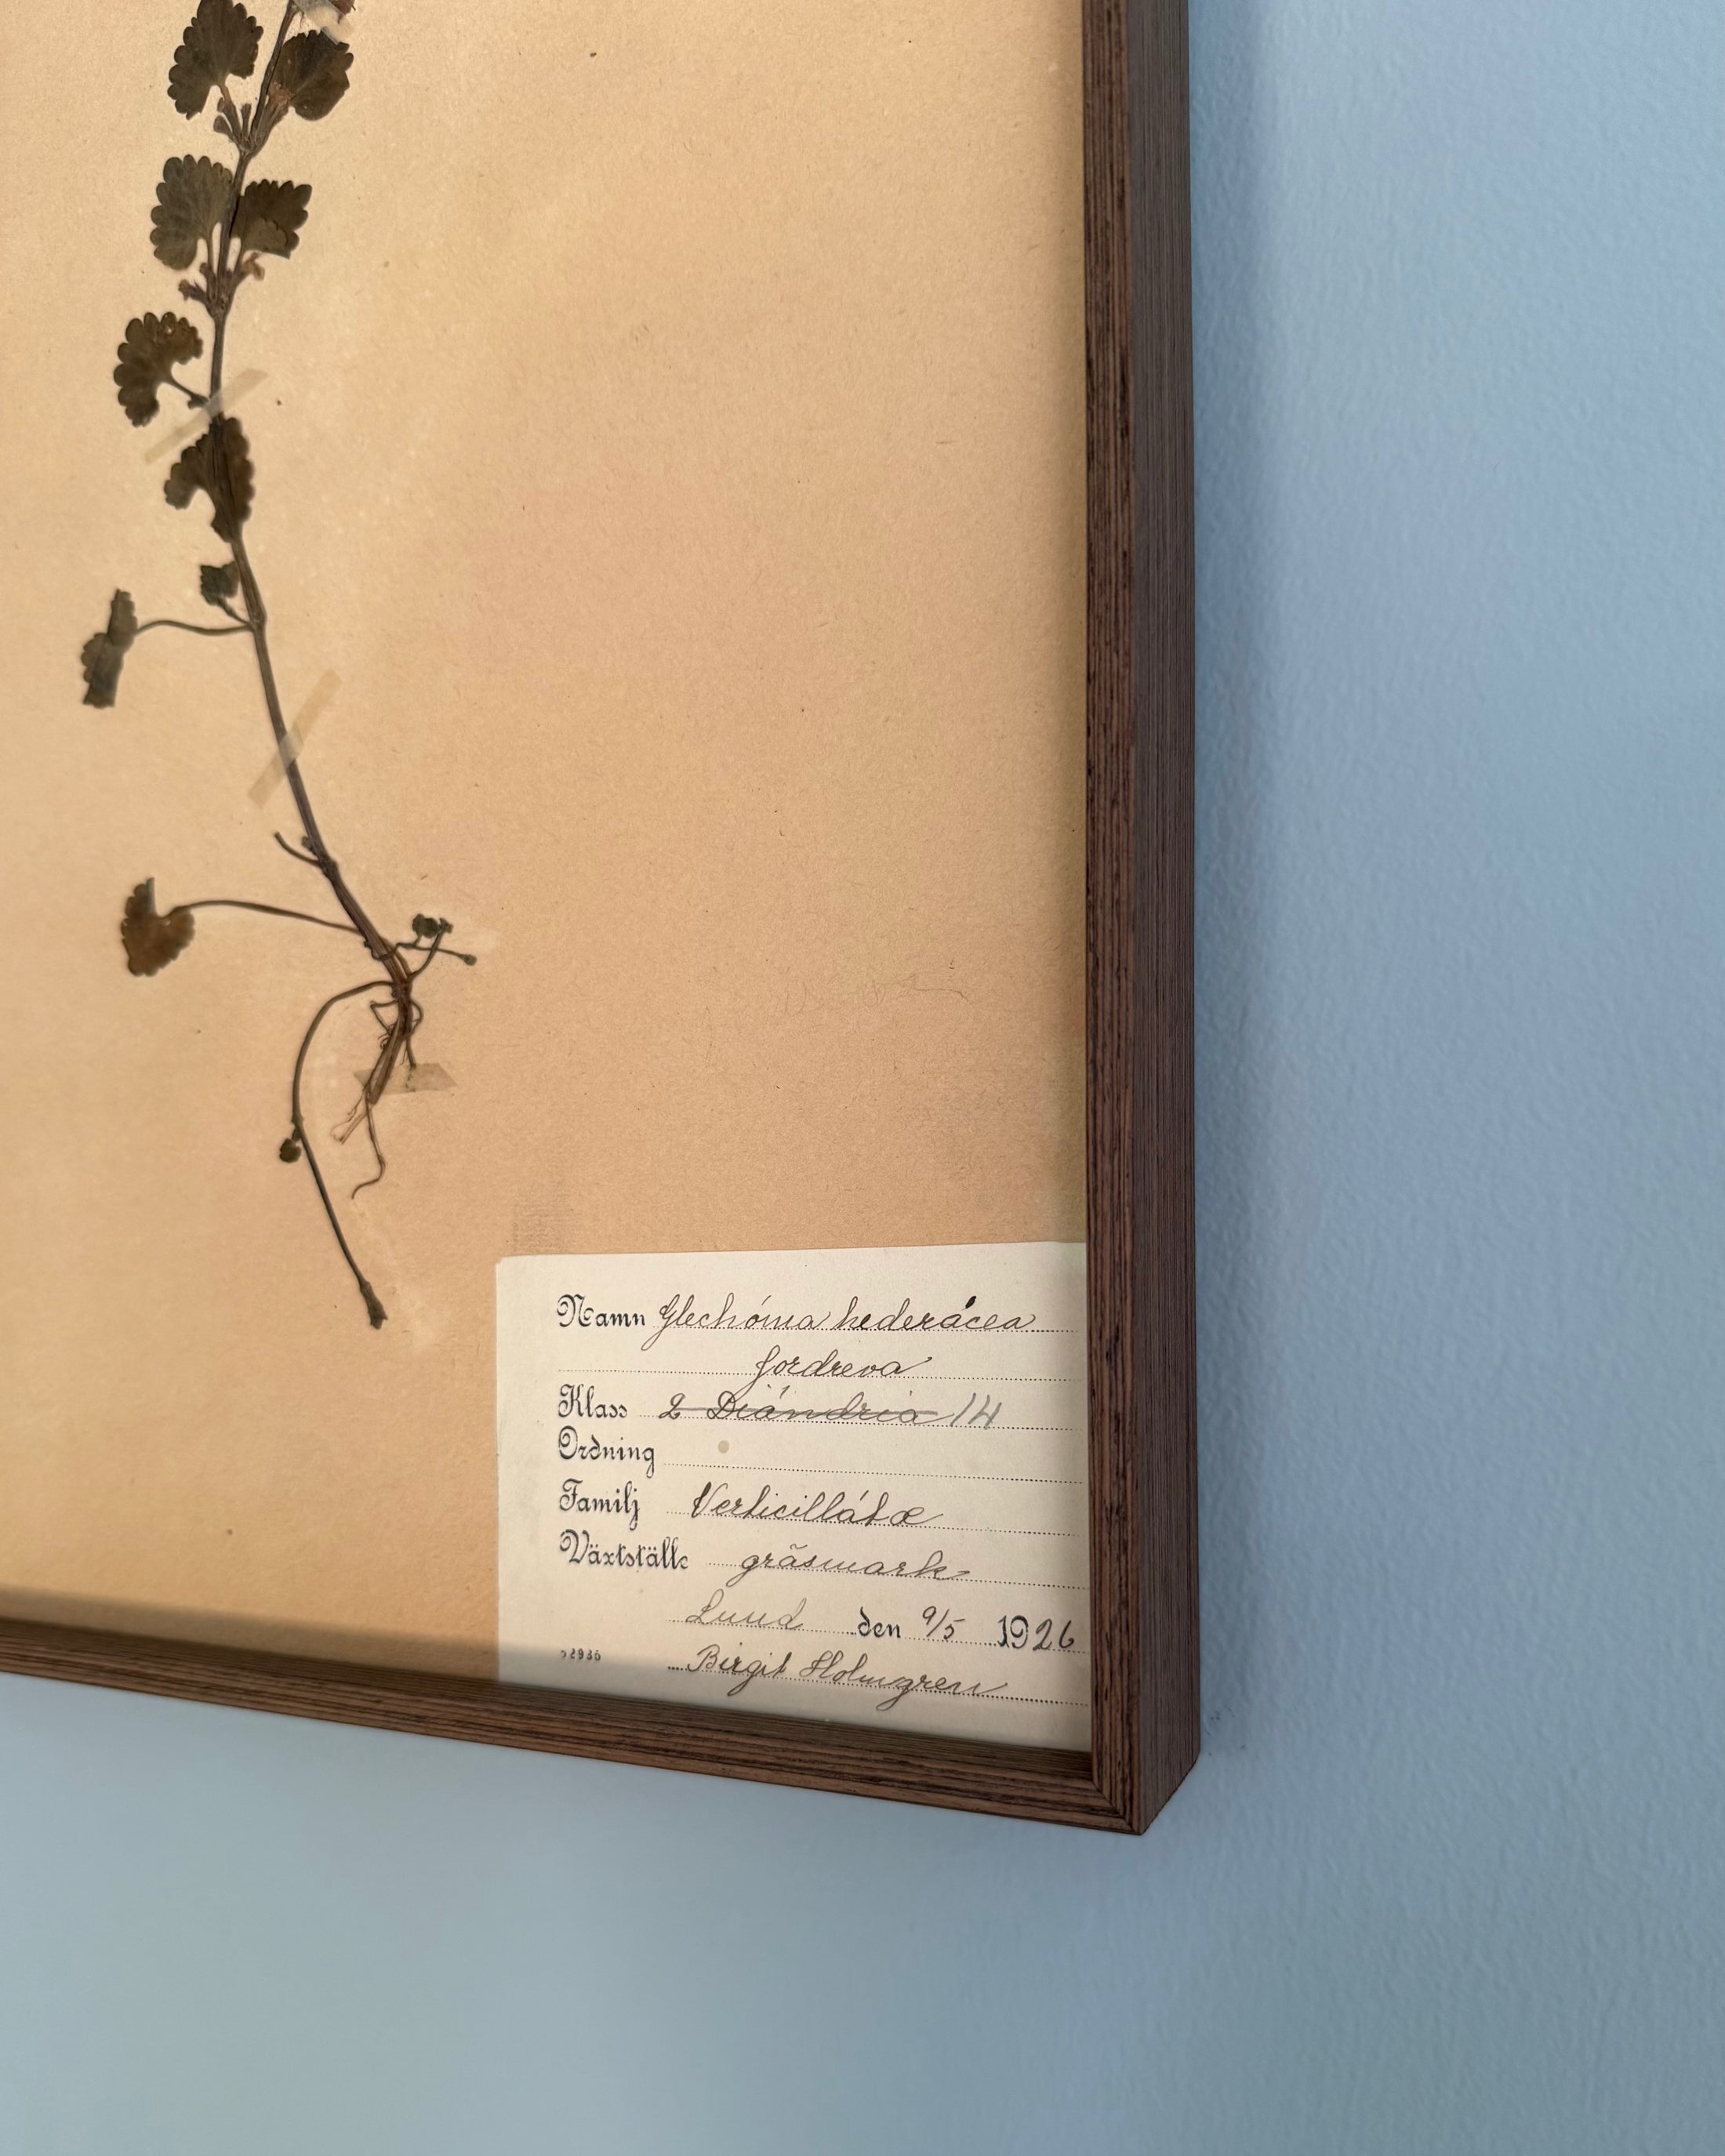 Namn Glechóma hederácea
Jordreva
Klass 2 Diándria 14
Ordning
Familj Verticillátæ
Växtställe gräsmark
Lund den 9/5 1926
Birgit Holmgren